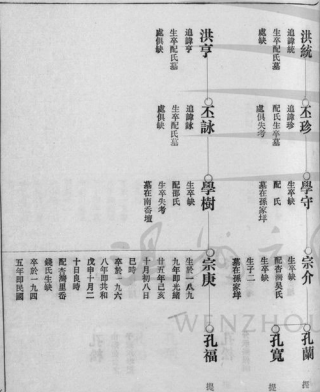 洪統
追諱統
生卒配氏墓
處俱缺
丕珍
追諱珍
配氏生卒墓
處俱失考
學守
生卒缺
配氏
墓在孫家坪
宗介
生卒缺
配杏灣吳氏
生卒缺
生子二
墓在孫家坪
孔蘭
孔寬
洪亨
追諱亨
生卒配氏墓
處俱缺
丕詠
追諱詠
生卒配氏墓
處俱缺
學樹
生卒缺
配邵氏
生卒失考
墓在南番壇
宗庚
生於一八九
九年即光緒
廿五年己亥
十月初八日
巳時
卒於一九六
八年即共和
戊申十月二
十日良時
配杏灣里岙
錢氏生缺
卒於一九四
五年即民國
孔福
提
提
WENZHOU